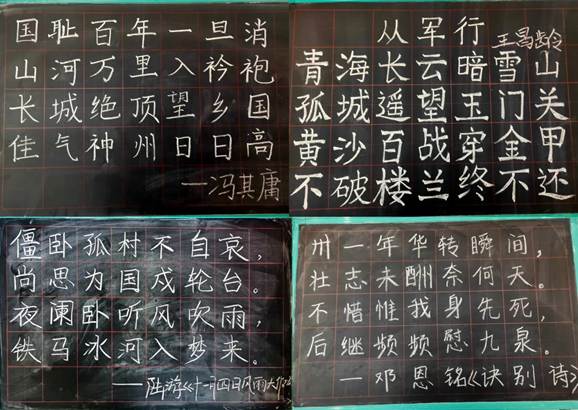 国耻百年一旦消
山河万里入衿袍
长城绝顶望乡国
佳气神州日日高
——冯其庸
从军行
王昌龄
青海长云暗雪山
孤城遥望玉门关
黄沙百战穿金甲
不破楼兰终不还
僵卧孤村不自哀，
尚思为国戍轮台。
夜阑卧听风吹雨，
铁马冰河入梦来。
——陆游《十一月四日风雨大作》
卅一年华转瞬间，
壮志未酬奈何天。
不惜惟我身先死，
后继频频慰九泉。
—邓恩铭《诀别诗》